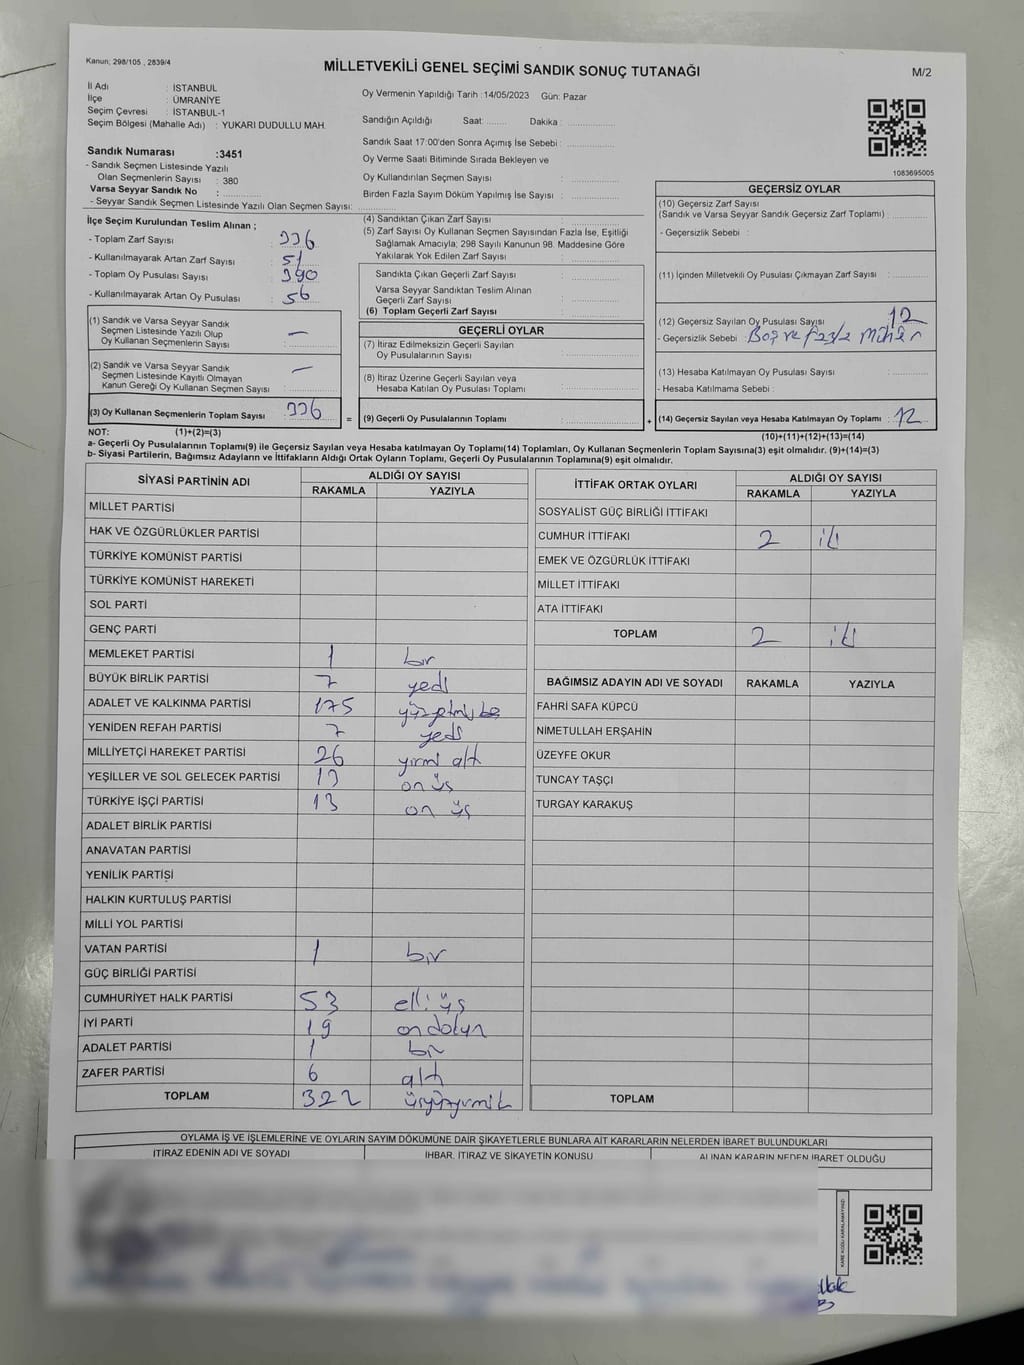 Kanun; 298/105 , 2839/4
MİLLETVEKİLİ GENEL SEÇİMİ SANDIK SONUÇ TUTANAĞI
M/2
İl Adı : İSTANBUL
İlçe : ÜMRANİYE
Seçim Çevresi : İSTANBUL-1
Seçim Bölgesi (Mahalle Adı) : YUKARI DUDULLU MAH.
Oy Vermenin Yapıldığı Tarih :14/05/2023 Gün: Pazar
Sandığın Açıldığı Saat: ........ Dakika : ..................
Sandık Saat 17:00'den Sonra Açımış İse Sebebi : ..................
Oy Verme Saati Bitiminde Sırada Bekleyen ve
Oy Kullandırılan Seçmen Sayısı : ..................
Birden Fazla Sayım Döküm Yapılmış İse Sayısı : ..................
1083695005
Sandık Numarası :3451
- Sandık Seçmen Listesinde Yazılı
Olan Seçmenin Sayısı : 380
Varsa Seyyar Sandık No : ..................
- Seyyar Sandık Seçmen Listesinde Yazılı Olan Seçmen Sayısı: ..................
İlçe Seçim Kurulundan Teslim Alınan ;
- Toplam Zarf Sayısı : 336
- Kullanılmayarak Artan Zarf Sayısı : 51
- Toplam Oy Pusulası Sayısı : 390
- Kullanılmayarak Artan Oy Pusulası : 56
(1) Sandık ve Varsa Seyyar Sandık
Seçmen Listesinde Yazılı Olup
Oy Kullanan Seçmenlerin Sayısı : —
(2) Sandık ve Varsa Seyyar Sandık
Seçmen Listesinde Kayıtlı Olmayan
Kanun Gereği Oy Kullanan Seçmen Sayısı : —
(3) Oy Kullanan Seçmenlerin Toplam Sayısı : 336 =
(4) Sandıktan Çıkan Zarf Sayısı : ..................
(5) Zarf Sayısı Oy Kullanan Seçmen Sayısından Fazla İse, Eşitliği
Sağlamak Amacıyla; 298 Sayılı Kanunun 98. Maddesine Göre
Yakılarak Yok Edilen Zarf Sayısı : ..................
Sandıkta Çıkan Geçerli Zarf Sayısı : ..................
Varsa Seyyar Sandıktan Teslim Alınan
Geçerli Zarf Sayısı : ..................
(6) Toplam Geçerli Zarf Sayısı : ..................
GEÇERLİ OYLAR
(7) İtiraz Edilmeksizin Geçerli Sayılan
Oy Pusulalarının Sayısı : ..................
(8) İtiraz Üzerine Geçerli Sayılan veya
Hesaba Katılan Oy Pusulası Toplamı : ..................
(9) Geçerli Oy Pusulalarının Toplamı : .................. +
GEÇERSİZ OYLAR
(10) Geçersiz Zarf Sayısı
(Sandık ve Varsa Seyyar Sandık Geçersiz Zarf Toplamı) : ..........
- Geçersizlik Sebebi :
(11) İçinden Milletvekili Oy Pusulası Çıkmayan Zarf Sayısı : ..........
(12) Geçersiz Sayılan Oy Pusulası Sayısı : 12
- Geçersizlik Sebebi : Boş ve fazla mühür
(13) Hesaba Katılmayan Oy Pusulası Sayısı : ..........
- Hesaba Katılmama Sebebi :
(14) Geçersiz Sayılan veya Hesaba Katılmayan Oy Toplamı : 12
NOT: (1)+(2)=(3)
(10)+(11)+(12)+(13)=(14)
a- Geçerli Oy Pusulalarının Toplamı(9) ile Geçersiz Sayılan veya Hesaba katılmayan Oy Toplamı(14) Toplamları, Oy Kullanan Seçmenlerin Toplam Sayısına(3) eşit olmalıdır. (9)+(14)=(3)
b- Siyasi Partilerin, Bağımsız Adayların ve İttifakların Aldığı Ortak Oyların Toplamı, Geçerli Oy Pusulalarının Toplamına(9) eşit olmalıdır.
SİYASİ PARTİNİN ADI ALDIĞI OY SAYISI
RAKAMLA YAZIYLA
MİLLET PARTİSİ
HAK VE ÖZGÜRLÜKLER PARTİSİ
TÜRKİYE KOMÜNİST PARTİSİ
TÜRKİYE KOMÜNİST HAREKETİ
SOL PARTİ
GENÇ PARTİ
MEMLEKET PARTİSİ 1 bir
BÜYÜK BİRLİK PARTİSİ 7 yedi
ADALET VE KALKINMA PARTİSİ 175 yüzyetmişbe
YENİDEN REFAH PARTİSİ 7 yedi
MİLLİYETÇİ HAREKET PARTİSİ 26 yirmi altı
YEŞİLLER VE SOL GELECEK PARTİSİ 13 on üç
TÜRKİYE İŞÇİ PARTİSİ 13 on üç
ADALET BİRLİK PARTİSİ
ANAVATAN PARTİSİ
YENİLİK PARTİSİ
HALKIN KURTULUŞ PARTİSİ
MİLLİ YOL PARTİSİ
VATAN PARTİSİ 1 bir
GÜÇ BİRLİĞİ PARTİSİ
CUMHURİYET HALK PARTİSİ 53 elli üç
İYİ PARTİ 19 ondokuz
ADALET PARTİSİ 1 bir
ZAFER PARTİSİ 6 altı
TOPLAM 322 üçyüzyirmiik
İTTİFAK ORTAK OYLARI ALDIĞI OY SAYISI
RAKAMLA YAZIYLA
SOSYALİST GÜÇ BİRLİĞİ İTTİFAKI
CUMHUR İTTİFAKI 2 iki
EMEK VE ÖZGÜRLÜK İTTİFAKI
MİLLET İTTİFAKI
ATA İTTİFAKI
TOPLAM 2 iki
BAĞIMSIZ ADAYIN ADI VE SOYADI RAKAMLA YAZIYLA
FAHRİ SAFA KÜPCÜ
NİMETULLAH ERŞAHİN
ÜZEYFE OKUR
TUNCAY TAŞÇI
TURGAY KARAKUŞ
TOPLAM
OYLAMA İŞ VE İŞLEMLERİNE VE OYLARIN SAYIM DÖKÜMÜNE DAİR ŞİKAYETLERLE BUNLARA AİT KARARLARIN NELERDEN İBARET BULUNDUKLARI
İTİRAZ EDENİN ADI VE SOYADI İHBAR, İTİRAZ VE ŞİKAYETİN KONUSU ALINAN KARARIN NEDEN İBARET OLDUĞU
KARE KODU KARALAMAYINIZ!